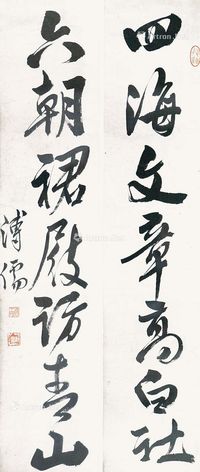 四海文章高白社
六朝裙屐访青山
溥儒